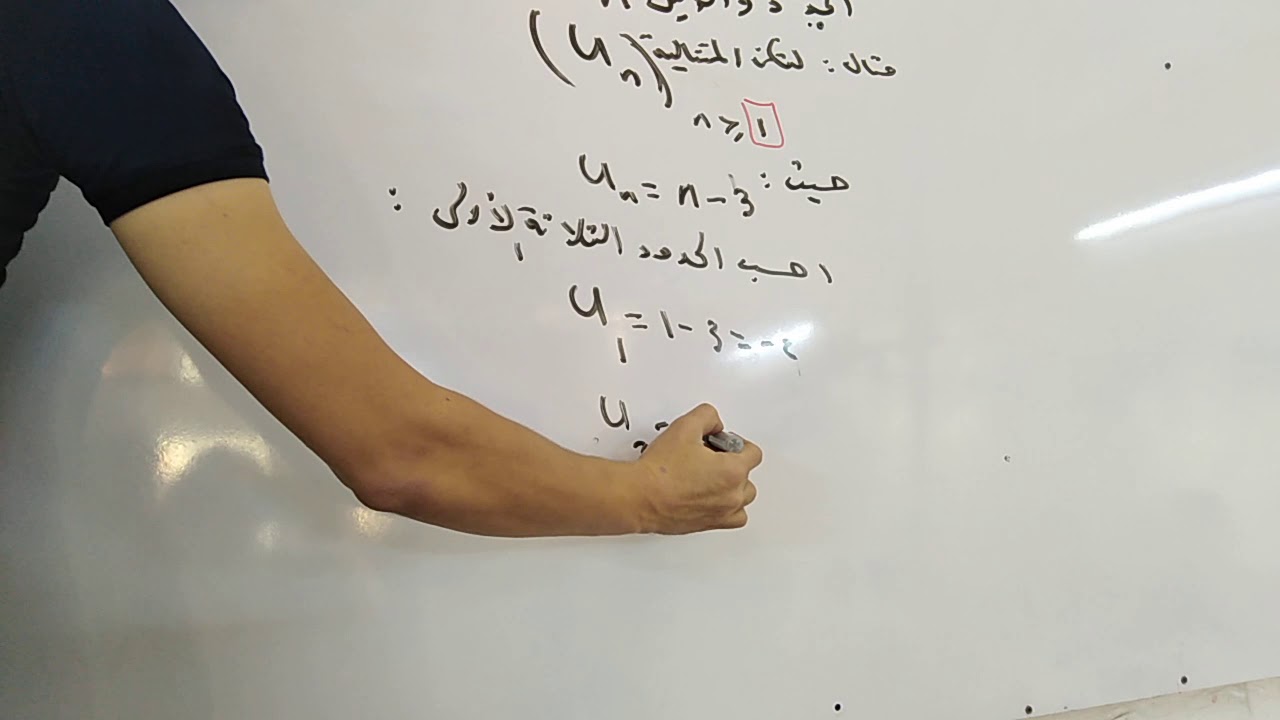 مثال: لتكن المتتالية (Uₙ)
n ≥ 1
حيث: Uₙ = n - 3
احسب الحدود الثلاثة الأولى :
U₁ = 1 - 3 = -2
U₂ =